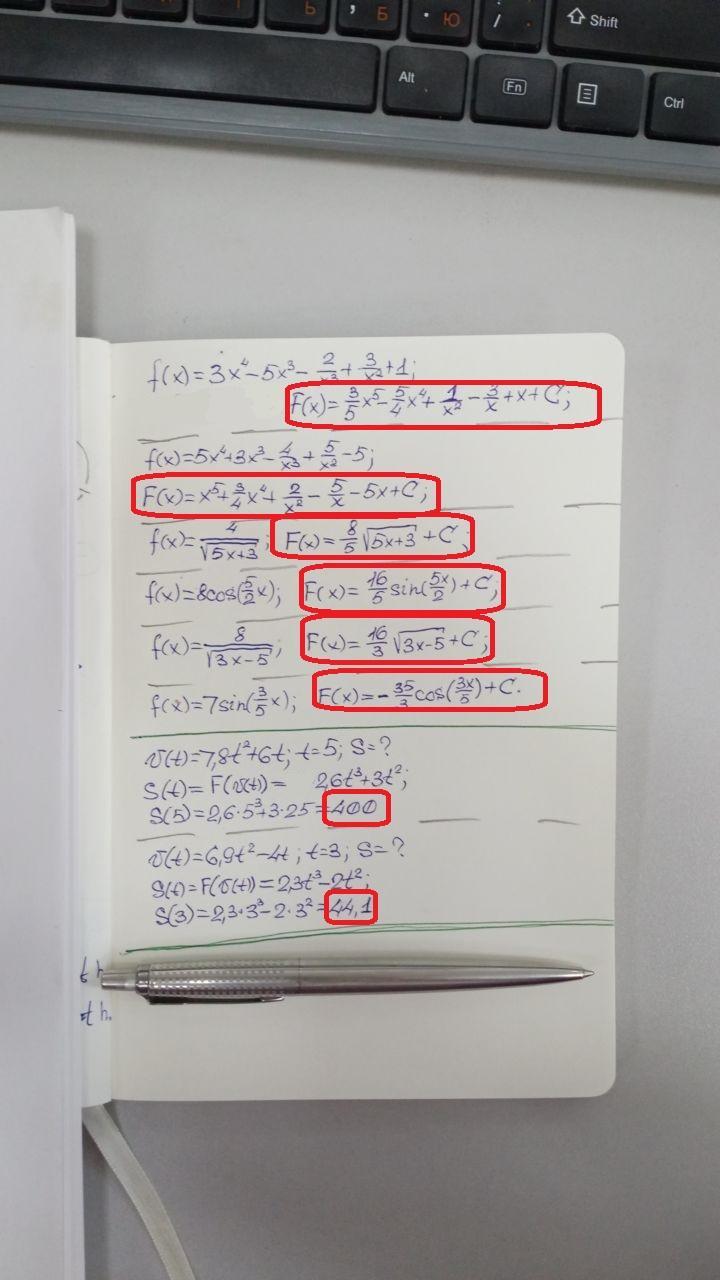 Ь , Б . Ю / . ⇧ Shift
Alt Fn Ctrl
f(x)=3x⁴-5x³-2/x³+3/x²+1;
F(x)=3/5x⁵-5/4x⁴+1/x²-3/x+x+C;
f(x)=5x⁴+3x³-4/x³+5/x²-5;
F(x)=x⁵+3/4x⁴+2/x²-5/x-5x+C;
f(x)=4/√(5x+3); F(x)=8/5√(5x+3)+C;
f(x)=8cos(5/2x); F(x)=16/5sin(5x/2)+C;
f(x)=8/√(3x-5); F(x)=16/3√(3x-5)+C;
f(x)=7sin(3/5x); F(x)=-35/3cos(3x/5)+C.
v(t)=7,8t²+6t; t=5; S=?
S(t)=F(v(t))= 2,6t³+3t²;
S(5)=2,6·5³+3·25=400
v(t)=6,9t²-4t; t=3; S=?
S(t)=F(v(t))=2,3t³-2t²;
S(3)=2,3·3³-2·3²=44,1
t h.
t h.